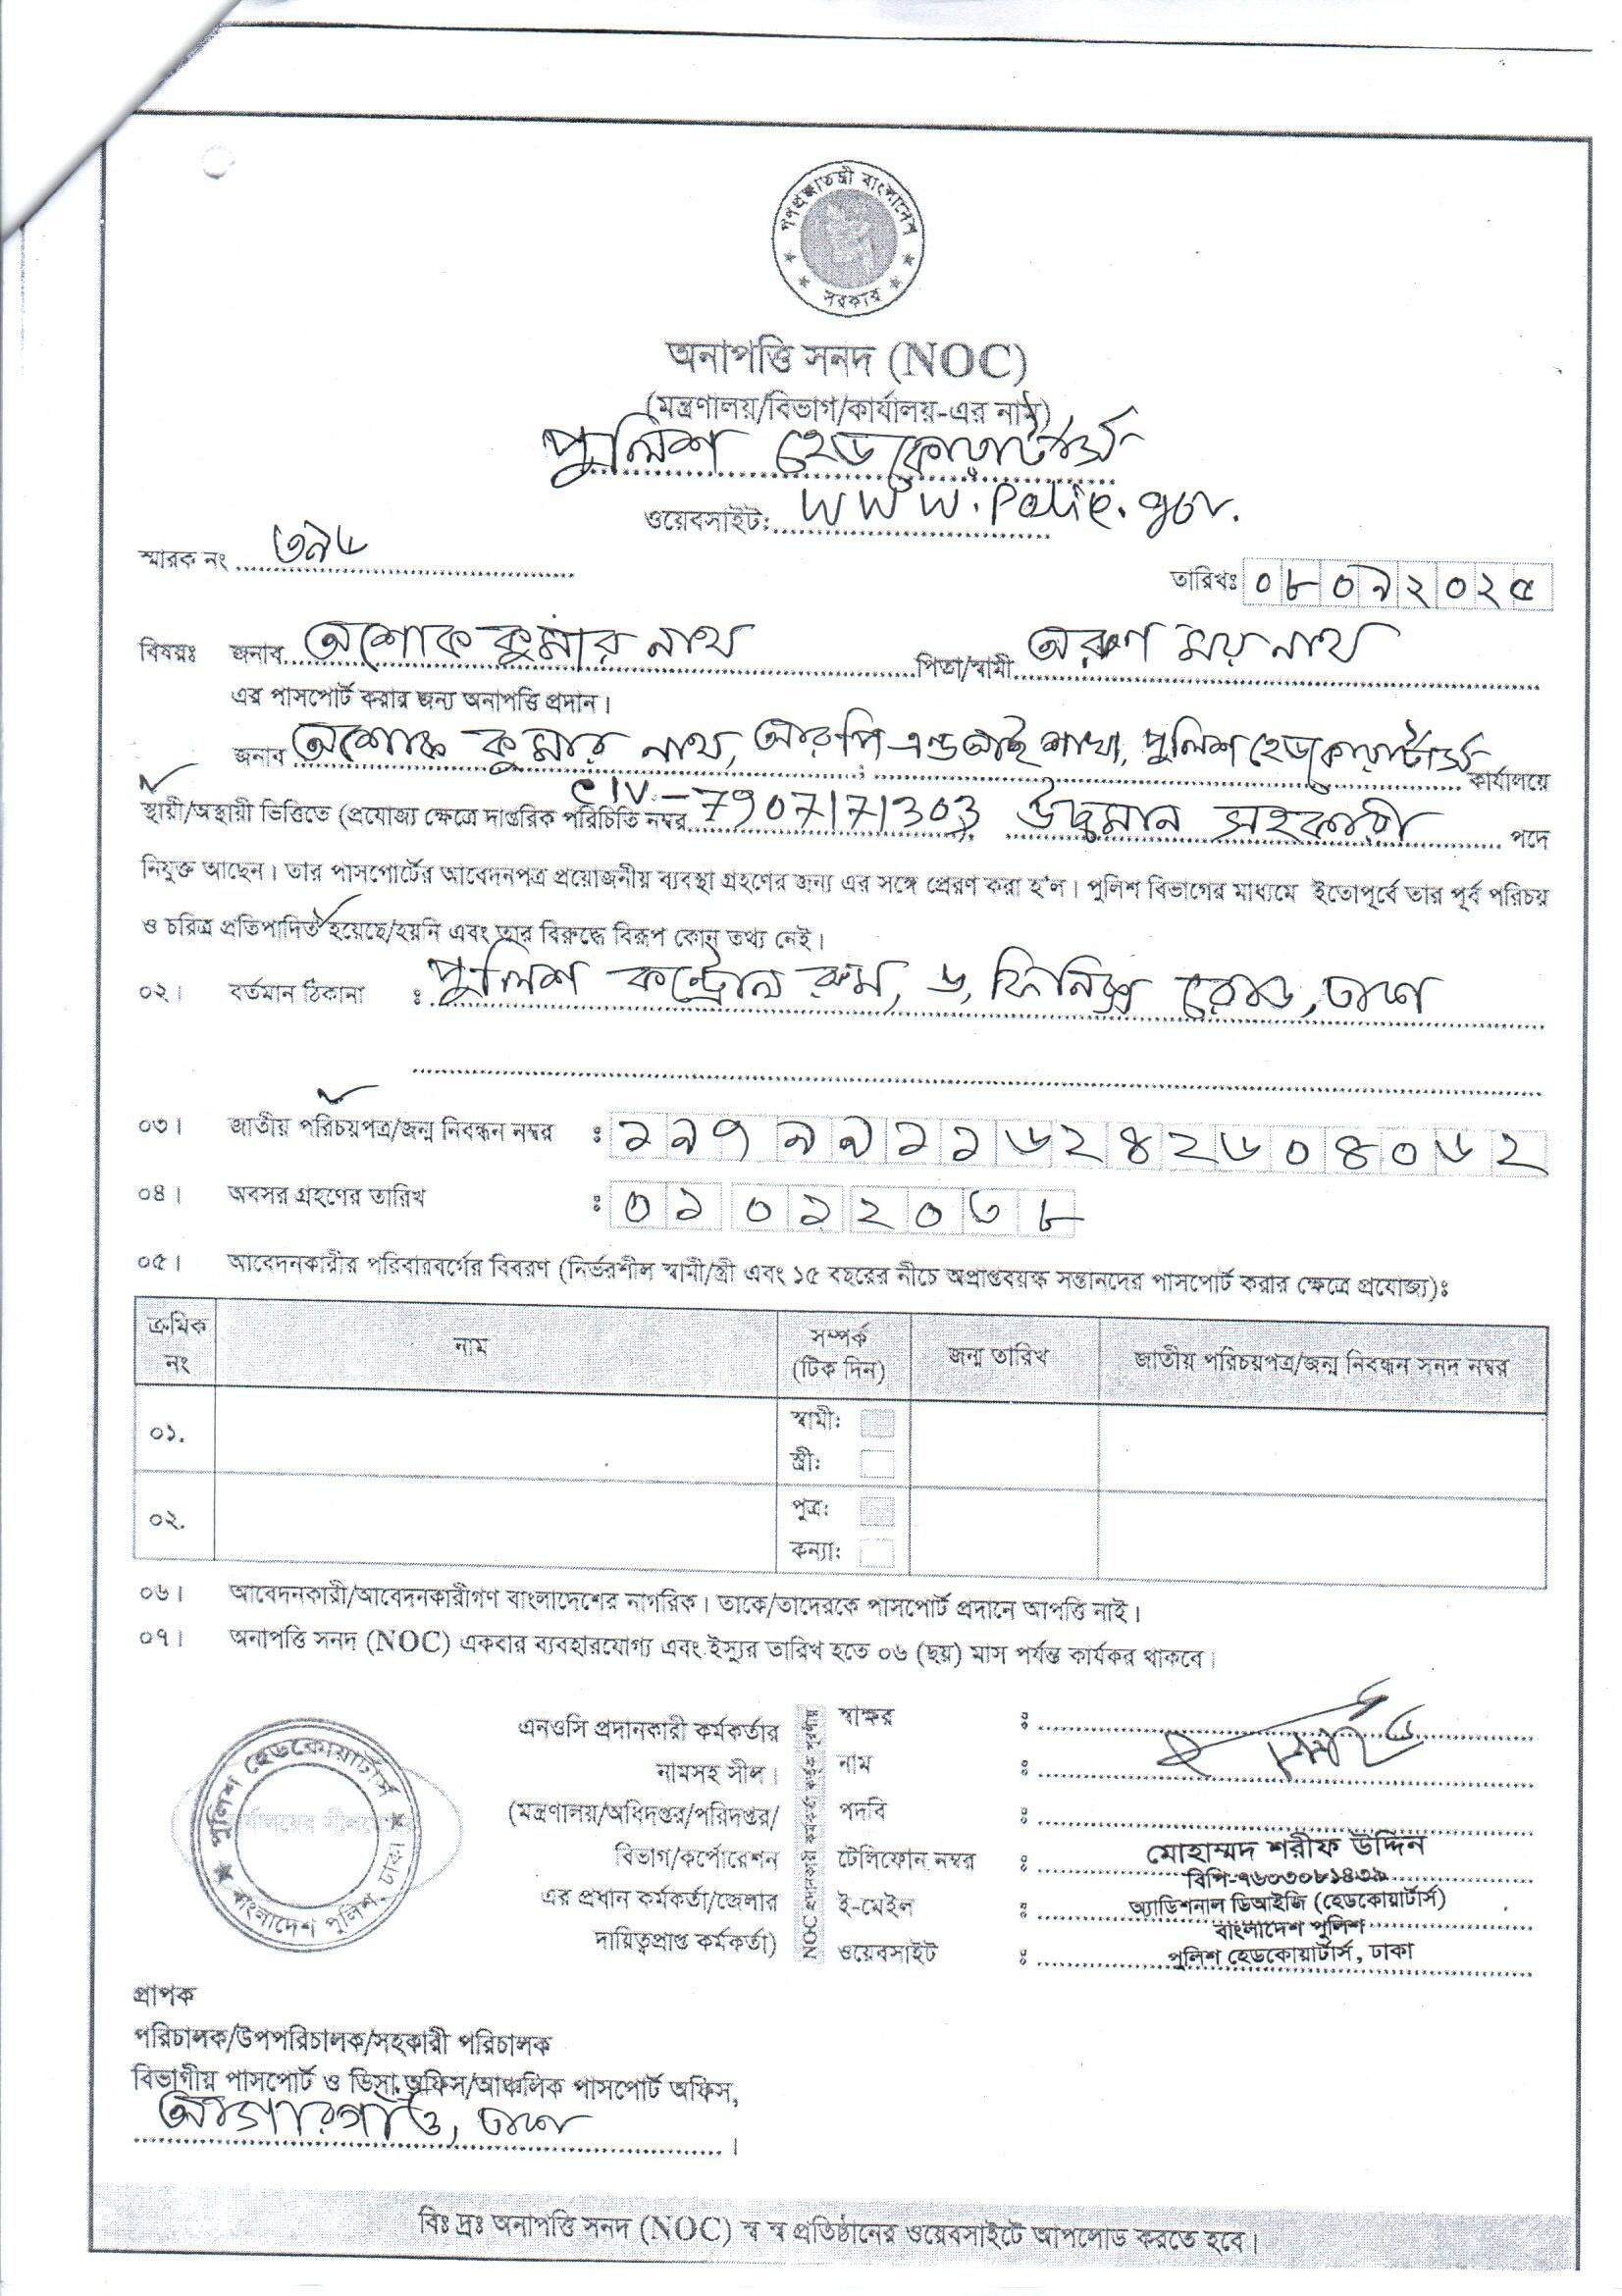 গণপ্রজাতন্ত্রী বাংলাদেশ
সরকার
অনাপত্তি সনদ (NOC)
(মন্ত্রণালয়/বিভাগ/কার্যালয়-এর নাম)
পুলিশ হেডকোয়ার্টার্স
ওয়েবসাইট: www.police.gov.
স্মারক নং ৩৯৮
তারিখঃ ০৮০৯২০২৫
বিষয়ঃ জনাব অশোক কুমার নাথ পিতা/স্বামী অরুণ ময় নাথ
এর পাসপোর্ট করার জন্য অনাপত্তি প্রদান।
জনাব অশোক কুমার নাথ, আরপি এন্ড আই শাখা, পুলিশ হেডকোয়ার্টার্স কার্যালয়ে
স্থায়ী/অস্থায়ী ভিত্তিতে (প্রযোজ্য ক্ষেত্রে দাপ্তরিক পরিচিতি নম্বর CIV-7907171303 উচ্চমান সহকারী পদে
নিযুক্ত আছেন। তার পাসপোর্টের আবেদনপত্র প্রয়োজনীয় ব্যবস্থা গ্রহণের জন্য এর সঙ্গে প্রেরণ করা হ'ল। পুলিশ বিভাগের মাধ্যমে ইতোপূর্বে তার পূর্ব পরিচয়
ও চরিত্র প্রতিপাদিত হয়েছে/হয়নি এবং তার বিরুদ্ধে বিরূপ কোন তথ্য নেই।
০২। বর্তমান ঠিকানা : পুলিশ কন্ট্রোল রুম, ৬, ফিনিক্স রোড, ঢাকা
০৩। জাতীয় পরিচয়পত্র/জন্ম নিবন্ধন নম্বর : ১৯৭৯৯১১৬২৪২৬০৪০৬২
০৪। অবসর গ্রহণের তারিখ : ০১০১২০৩৮
০৫। আবেদনকারীর পরিবারবর্গের বিবরণ (নির্ভরশীল স্বামী/স্ত্রী এবং ১৫ বছরের নীচে অপ্রাপ্তবয়স্ক সন্তানদের পাসপোর্ট করার ক্ষেত্রে প্রযোজ্য):
ক্রমিক নং নাম সম্পর্ক (টিক দিন) জন্ম তারিখ জাতীয় পরিচয়পত্র/জন্ম নিবন্ধন সনদ নম্বর
০১. স্বামী:
স্ত্রী:
০২. পুত্র:
কন্যা:
০৬। আবেদনকারী/আবেদনকারীগণ বাংলাদেশের নাগরিক। তাকে/তাদেরকে পাসপোর্ট প্রদানে আপত্তি নাই।
০৭। অনাপত্তি সনদ (NOC) একবার ব্যবহারযোগ্য এবং ইস্যুর তারিখ হতে ০৬ (ছয়) মাস পর্যন্ত কার্যকর থাকবে।
পুলিশ হেডকোয়ার্টার্স
বাংলাদেশ পুলিশ, ঢাকা
এনওসি প্রদানকারী কর্মকর্তার
নামসহ সীল।
(মন্ত্রণালয়/অধিদপ্তর/পরিদপ্তর/
বিভাগ/কর্পোরেশন
এর প্রধান কর্মকর্তা/জেলার
দায়িত্বপ্রাপ্ত কর্মকর্তা)
NOC প্রদানকারী কর্মকর্তা কর্তৃক পূরণীয়
স্বাক্ষর :
নাম :
পদবি :
টেলিফোন নম্বর :
ই-মেইল :
ওয়েবসাইট :
মোহাম্মদ শরীফ উদ্দিন
বিপি-৭৬০৩০৮১৪৩৯
অ্যাডিশনাল ডিআইজি (হেডকোয়ার্টার্স)
বাংলাদেশ পুলিশ
পুলিশ হেডকোয়ার্টার্স, ঢাকা
প্রাপক
পরিচালক/উপপরিচালক/সহকারী পরিচালক
বিভাগীয় পাসপোর্ট ও ভিসা অফিস/আঞ্চলিক পাসপোর্ট অফিস,
আগারগাঁও, ঢাকা।
বিঃ দ্রঃ অনাপত্তি সনদ (NOC) স্ব স্ব প্রতিষ্ঠানের ওয়েবসাইটে আপলোড করতে হবে।